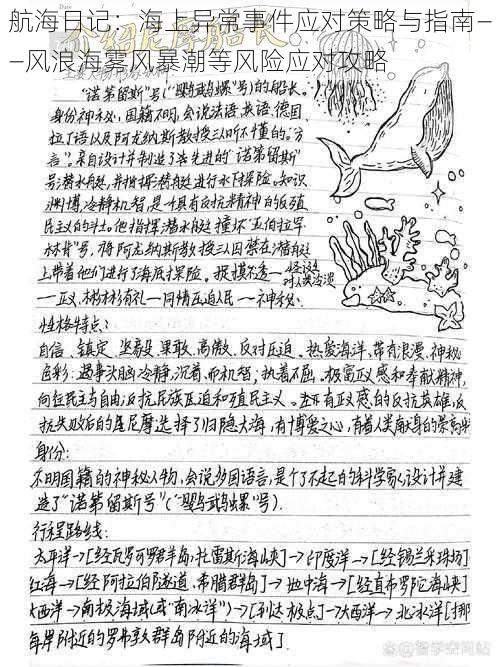 航海日记：海上异常事件应对策略与指南–
–风浪海雾风暴潮等风险应对攻略
Date
介绍尼摩船长
"诺第留斯"号("鹦鹉螺"号)的船长。
身份神秘，国籍不明，会说法语、英语、德国、
拉丁语以及阿龙纳斯教授三人听不懂的"方
言"。亲自设计并制造了先进的"诺第留斯"
号潜水艇，并指挥潜艇进行水下探险。知识
渊博，冷静机智，是个具有反抗精神的反殖
民主义的斗士。他指挥潜水艇撞坏"亚伯拉罕·
林肯"号，将阿龙纳斯教授三人囚禁在潜艇
上带着他们进行了海底探险。捉摸不透—怪诞
对人类冷淡
——正义、彬彬有礼—同情压迫人民——神秘。
性格特点：
自信、镇定、坚毅、果敢、高傲、反对压迫、热爱海洋，带有浪漫、神秘
色彩：遇事头脑冷静，沉着而机智；执着不屈，极富正义感和奉献精神，
向往民主与自由；反抗民族压迫和殖民主义。在有正义感的反抗英雄，反
抗失败后的尼摩选择了归隐大海，有博爱之心，有着人类献身的崇高
身份：
不明国籍的神秘人物，会说多国语言，是个了不起的科学家，设计并建
造了"诺第留斯号"("鹦鹉螺"号)。
行程路线：
太平洋→[经瓦罗可罗群岛，托雷斯海峡]→印度洋→[经锡兰采珠场]
红海→[经阿拉伯隧道、希腊群岛]→地中海→[经直布罗陀海峡]
大西洋→南极海域(或"南冰洋")→[到达极点]→大西洋→北冰洋[挪
海岸附近的罗弗敦群岛附近的海域]。